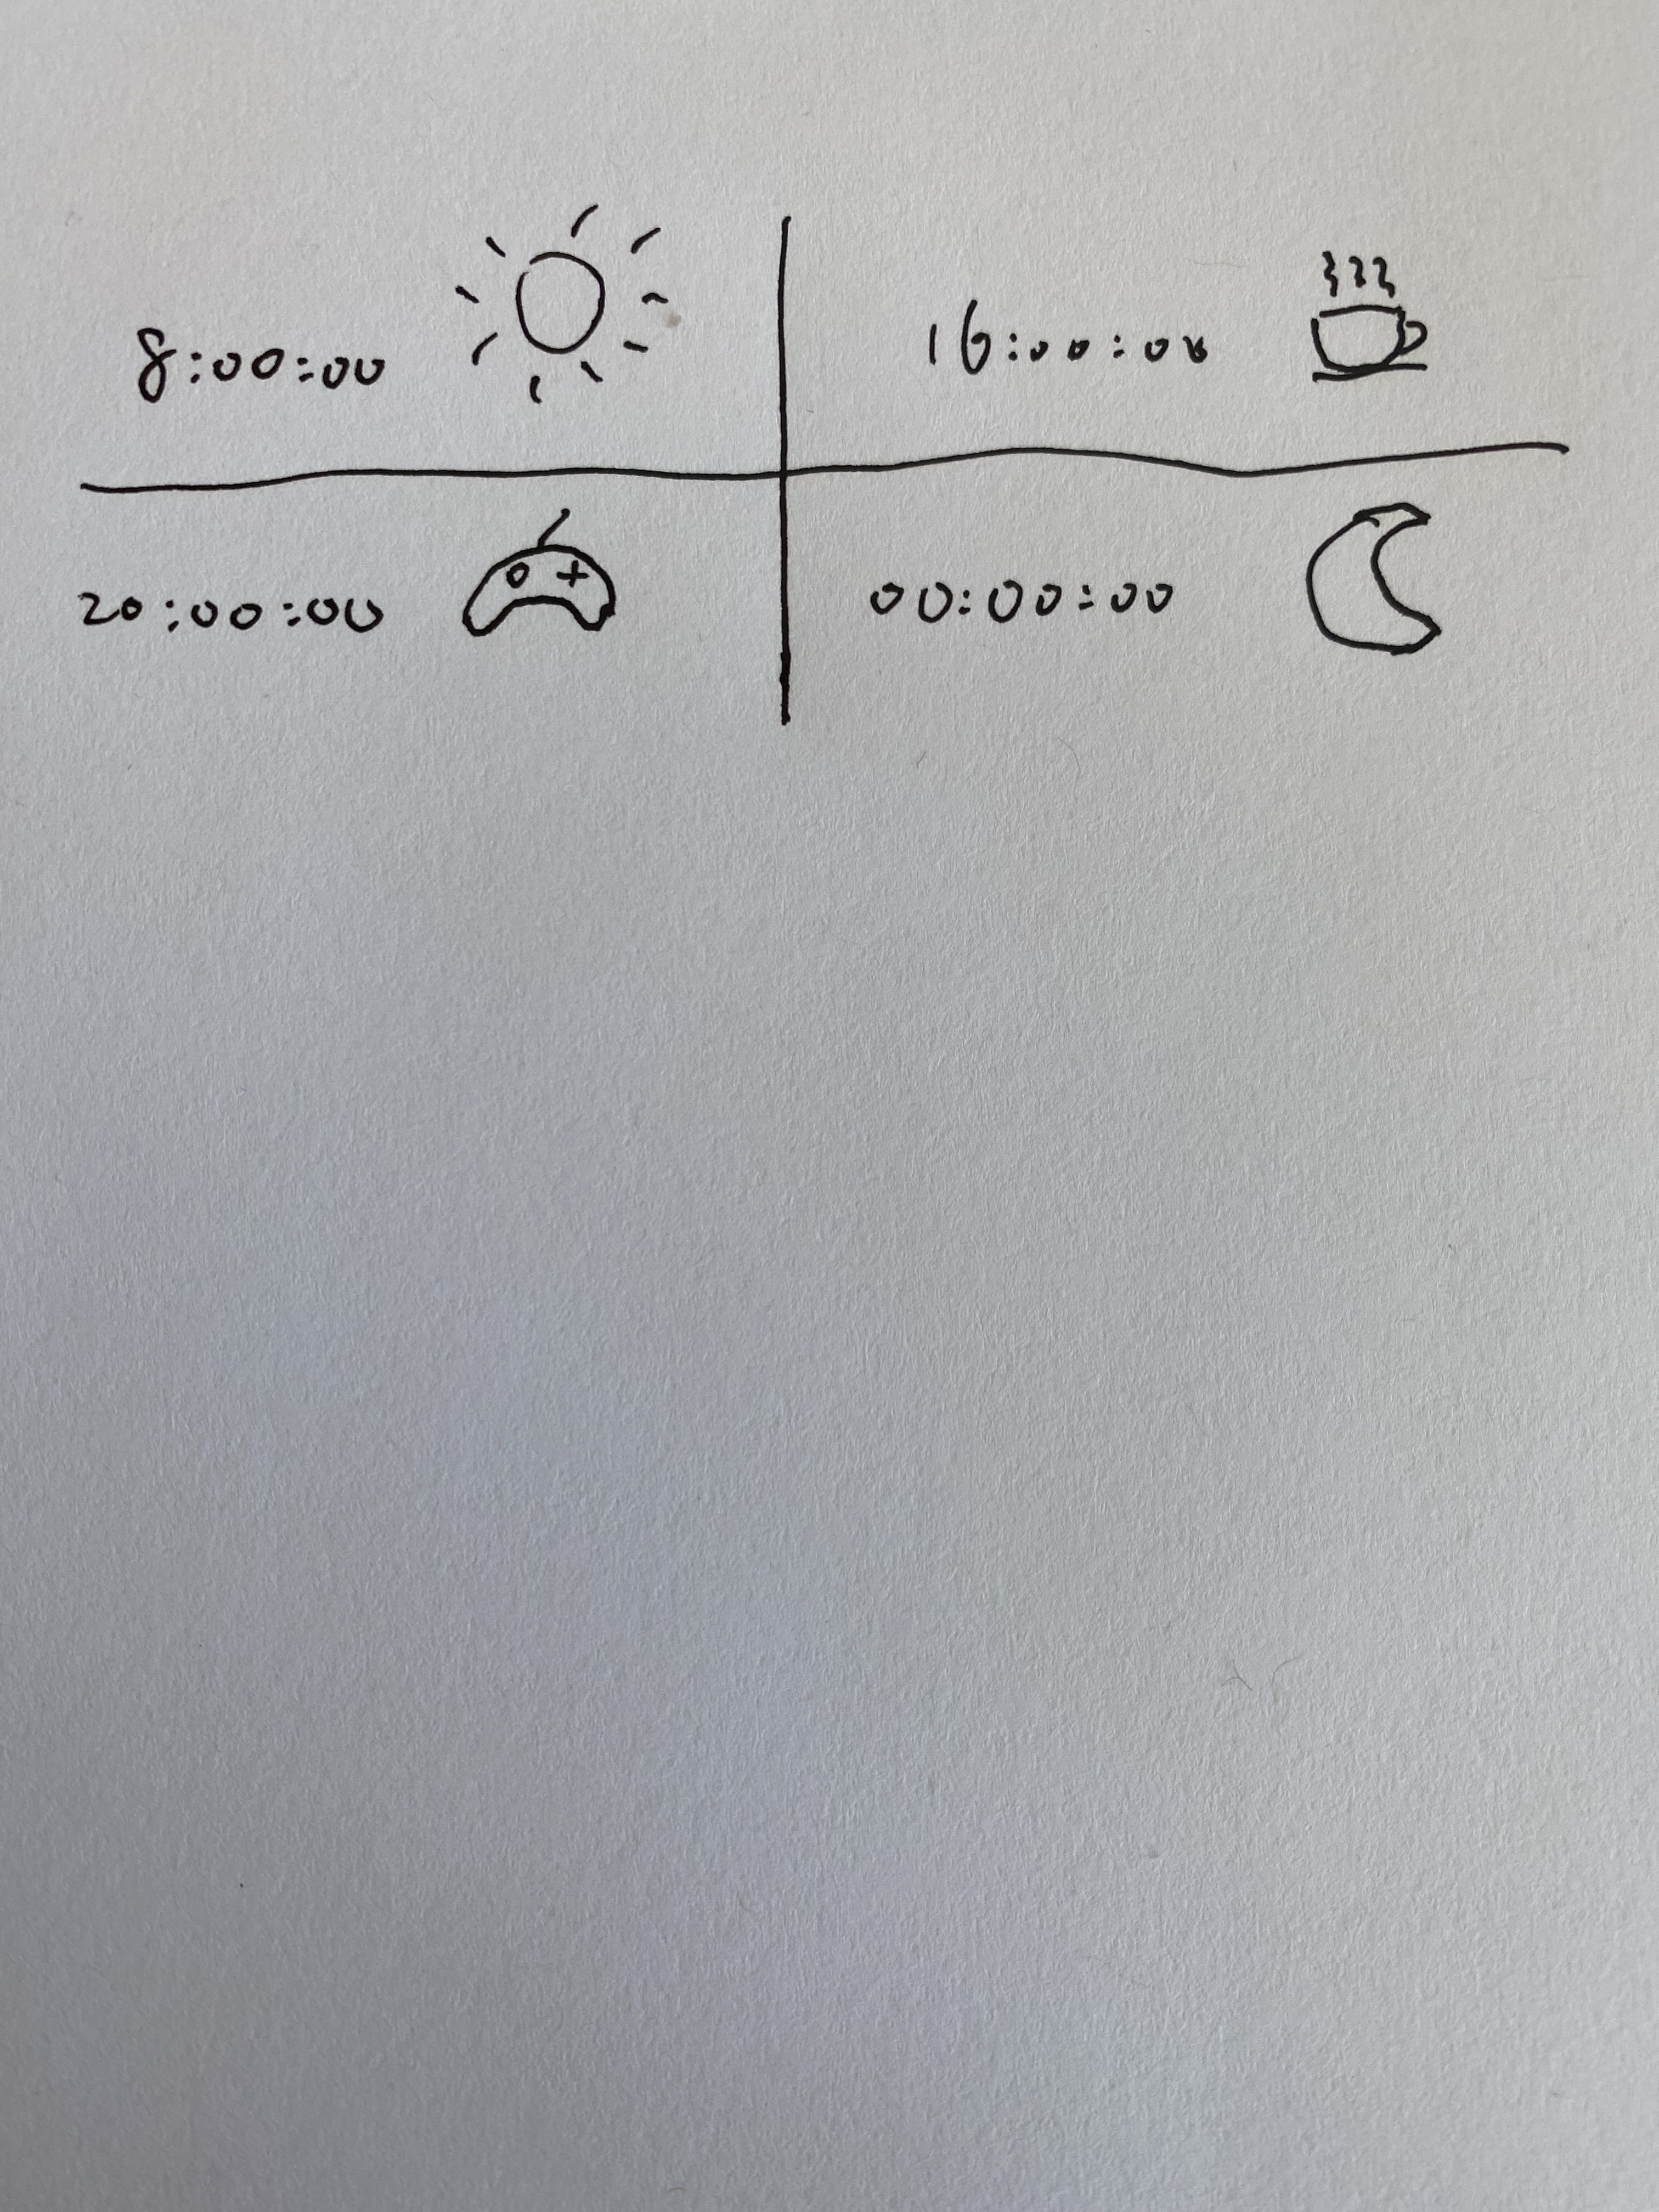 8:00:00
16:00:00
20:00:00
00:00:00